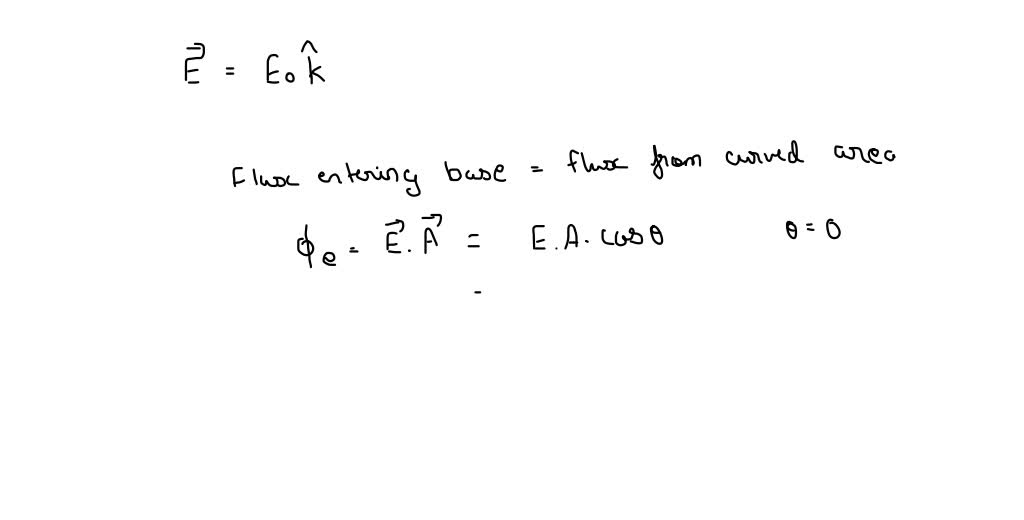 E⃗ = E₀ k̂
Flux entering base = flux from curved area
ϕe = E⃗ . A⃗ = E . A . cosθ θ = 0
-